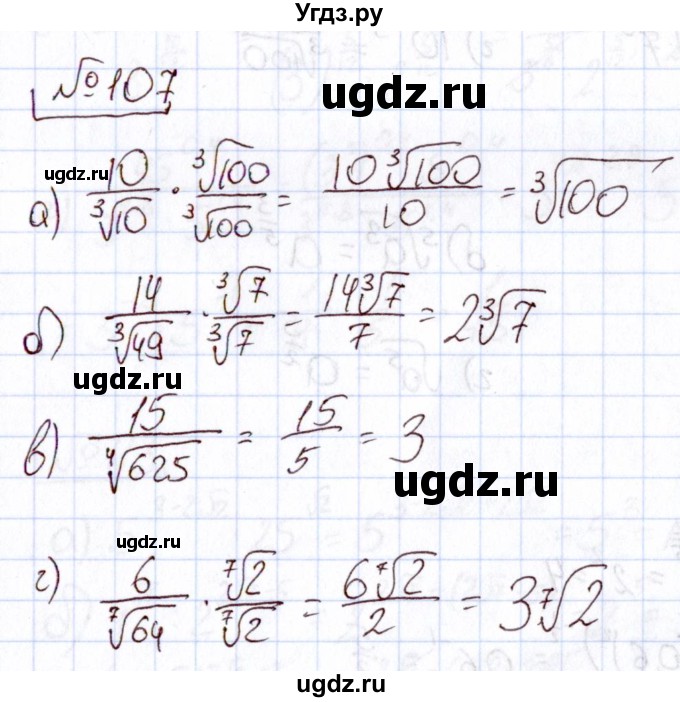 Угдз.ру
№ 107
ugdz.ru
ugdz.ru
а) 10/∛10 · ∛100/∛100 = 10∛100/10 = ∛100
б) 14/∛49 · ∛7/∛7 = 14∛7/7 = 2∛7
ugdz.ru
в) 15/∜625 = 15/5 = 3
ugdz.ru
ugdz.ru
г) 6/⁷√64 · ⁷√2/⁷√2 = 6⁷√2/2 = 3⁷√2
ugdz.ru